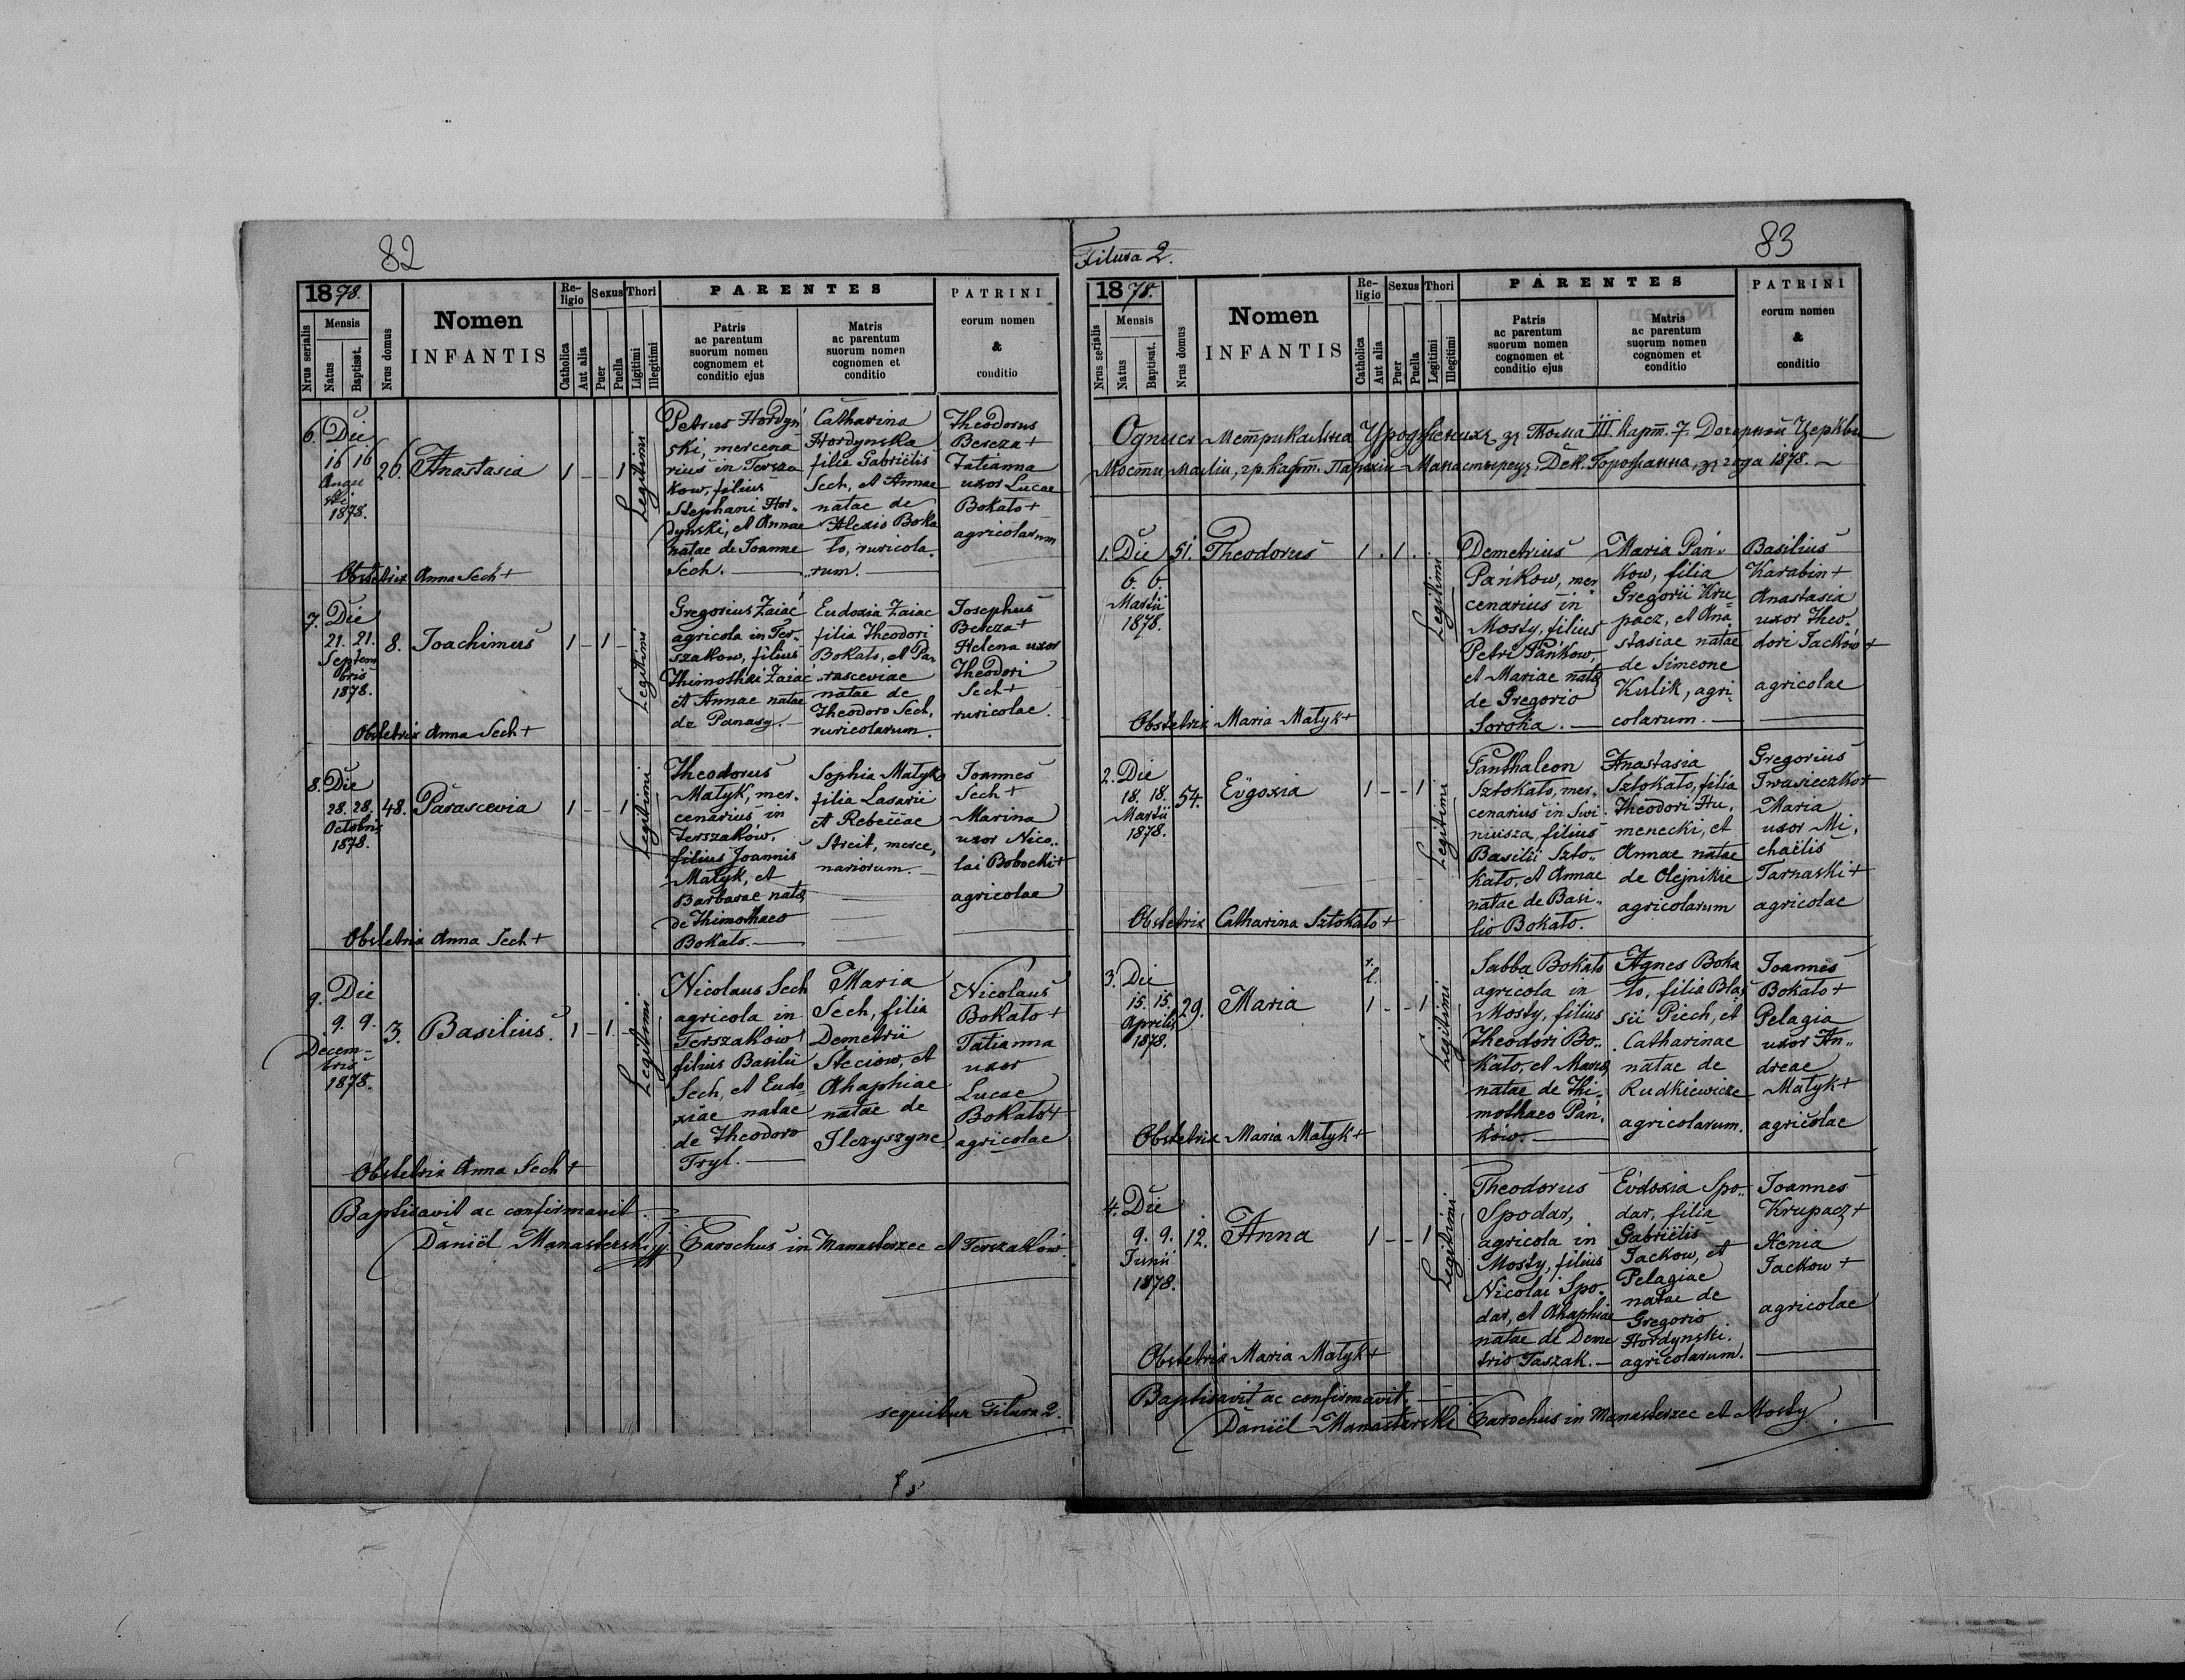 82
1878.
Nrus serialis
Mensis
Natus
Baptisat.
Nrus domus
Nomen
INFANTIS
Religio
Catholica
Aut alia
Sexus
Puer
Puella
Thori
Ligitimi
Illegitimi
PARENTES
Patris
ac parentum
suorum nomen
cognomem et
conditio ejus
Matris
ac parentum
suorum nomen
cognomen et
conditio
PATRINI
eorum nomen
&
conditio
6. Die
16 16
Augu
sti
1878.
26. Anastasia 1 - - 1
Legitimi
Petrus Hordyń
ski, mercena
rius in Tersza
kow, filius
Stephani Hor-
dynski, et Annae
natae de Joanne
Sech.
Catharina
Hordynska
filia Gabriëlis
Sech, et Annae
natae de
Alexio Boka
ło, ruricola
rum.
Theodorus
Bereza +
Tatianna
uxor Lucae
Bokało +
agricolarum
Obstetrix Anna Sech +
7. Die
21. 21.
Septem
bris
1878.
8. Joachimus 1 - 1 -
Legitimi
Gregorius Zaiać
agricola in Ter-
szakow, filius
Thimothei Zaiać
et Annae natae
de Panasy.
Eudoxia Zaiac
filia Theodori
Bokało, et Pa-
rasceviae
natae de
Theodoro Sech,
ruricolarum.
Josephus
Bereza +
Helena uxor
Theodori
Sech +
ruricolae.
Obstetrix Anna Sech +
8. Die
28. 28.
Octobris
1878.
48. Parascevia 1 - - 1
Legitimi
Theodorus
Małyk, mer-
cenarius in
Terszaków,
filius Joannis
Małyk, et
Barbarae natae
de Thimothaeo
Bokało.
Sophia Małyk
filia Lasarii
et Rebeccae
Streit, merce,
nariorum.
Joannes
Sech +
Marina
uxor Nico-
lai Bobocki +
agricolae
Obstetrix Anna Sech +
9. Die
9. 9.
Decem-
bris
1878.
3. Basilius. 1 - 1. -
Legitimi
Nicolaus Sech
agricola in
Terszakow
filius Basilii
Sech, et Eudo
xiae natae
de Theodoro
Tryl.
Maria
Sech, filia
Demetrii
Steciow, et
Ahaphiae
natae de
Ilczyszyne
Nicolaus
Bokało +
Tatianna
uxor
Lucae
Bokało +
agricolae
Obstetrix Anna Sech +
Baptisavit ac confirmavit
Daniël Manasterski Parochus in Manasterzec et Terszaków
sequitur Filura 2.
Filura 2.
83
1878.
Nrus serialis
Mensis
Natus
Baptisat.
Nrus domus
Nomen
INFANTIS
Religio
Catholica
Aut alia
Sexus
Puer
Puella
Thori
Legitimi
Illegitimi
PARENTES
Patris
ac parentum
suorum nomen
cognomen et
conditio ejus
Matris
ac parentum
suorum nomen
cognomen et
conditio
PATRINI
eorum nomen
&
conditio
Метрикальна Урожденихъ зъ Тома III. карт. 7. Дочерной Церкви
Мости, гр. кафт. Парохіи Манастырець, Дек. Горожанна, зъ года 1878.
1. Die
6. 6.
Martii
1878.
51. Theodorus 1. 1.
Legitimi
Demetrius
Pańkow, mer
cenarius in
Mosty, filius
Petri Pańkow,
et Mariae natae
de Gregorio
Soroka.
Maria Pań-
kow, filia
Gregorii Kru
pacz, et Ana
stasiae natae
de Simeone
Kulik, agri-
colarum.
Basilius
Karabin +
Anastasia
uxor Theo-
dori Jacków +
agricolae
Obstetrix Maria Małyk +
2. Die
18. 18.
Martii
1878.
54. Eŭgoxia 1 - - 1
Legitimi
Panthaleon
Sztokało, mer-
cenarius in Swi
niusza, filius
Basilii Szto-
kało, et Annae
natae de Basi-
lio Bokało.
Anastasia
Sztokało, filia
Theodori Hu-
menecki, et
Annae natae
de Olejnikie
agricolarum
Gregorius
Iwasieczko +
Maria
uxor Mi-
chaëlis
Tarnaski +
agricolae
Obstetrix Catharina Sztokało +
3. Die
15. 15.
Aprilis
1878.
29. Maria 1 - - 1
Legitimi
Sabba Bokało
agricola in
Mosty, filius
Theodori Bo-
kało, et Mariae
natae de Thi-
mothaeo Pań-
ków.
Agnes Boka
ło, filia Bła
sii Piech, et
Catharinae
natae de
Rudkiewicze
agricolarum.
Joannes
Bokało +
Pelagia
uxor An-
dreae
Małyk +
agricolae
Obstetrix Maria Małyk +
4. Die
9. 9.
Junii
1878.
12. Anna 1 - - 1
Legitimi
Theodorus
Spodar,
agricola in
Mosty, filius
Nicolai Spo-
dar, et Ahaphiae
natae de Deme
trio Taszak.
Evdoxia Spo-
dar, filia
Gabriëlis
Jackow, et
Pelagiae
natae de
Gregorio
Hordynski.
agricolarum.
Joannes
Krupacz +
Xenia
Jackow +
agricolae
Obstetrix Maria Małyk +
Baptisavit ac confirmavit
Daniël Manasterski Parochus in Manasterzec et Mosty